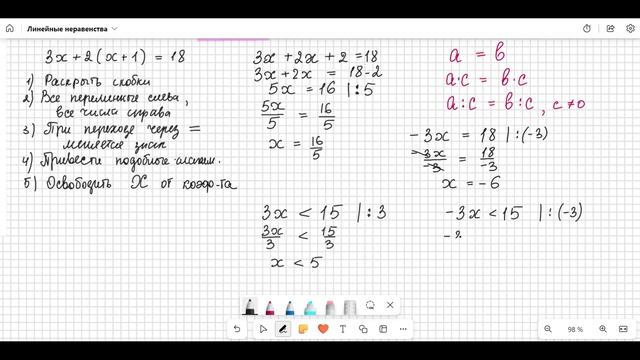 Линейные неравенства
3x + 2(x+1) = 18
1) Раскрыть скобки
2) Все переменные слева,
все числа справа
3) При переходе через =
меняется знак
4) Привести подобные слагаем.
5) Освободить X от коэф-та
3x + 2x + 2 = 18
3x + 2x = 18-2
5x = 16 | :5
5x/5 = 16/5
x = 16/5
a = b
a·c = b·c
a:c = b:c, c≠0
-3x = 18 | :(-3)
-3x/-3 = 18/-3
x = -6
3x < 15 | :3
3x/3 < 15/3
x < 5
-3x < 15 | :(-3)
98 %